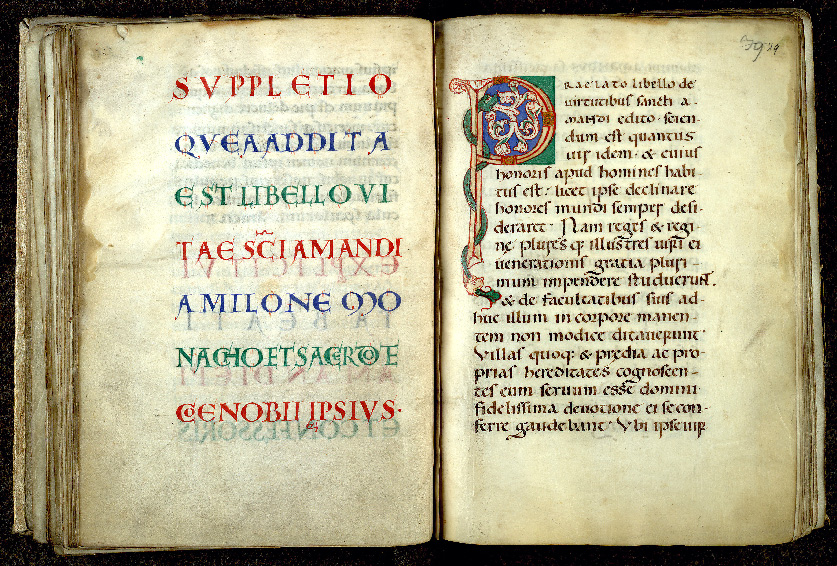 SVPPLETIO
QVEAADDITA
EST LIBELLO VI
TAE SCĪ AMANDI
A MILONE MO
NACHO ET SACERDOTE
CENOBII IPSIVS·
39
PRAELATO libello de
uirtutibus sancti a-
mandi edito· scien-
dum est quantus
uir idem· & cuius
honoris apud homines habi-
tus est· licet ipse declinare
honores mundi semper desi-
deraret· Nam reges & regi-
ne plures q; illustres uiri ei
uenerationis gratia pluri-
mum impendere studuerunt.
& de facultatibus suis ad-
huc illum in corpore manen-
tem non modice ditauerunt·
Villas quoq; & predia ac pro-
prias hereditates cognoscen-
tes eum seruum esse domini·
fidelissima deuotione ei se con-
ferre gaudebant· Vbi ipse uir